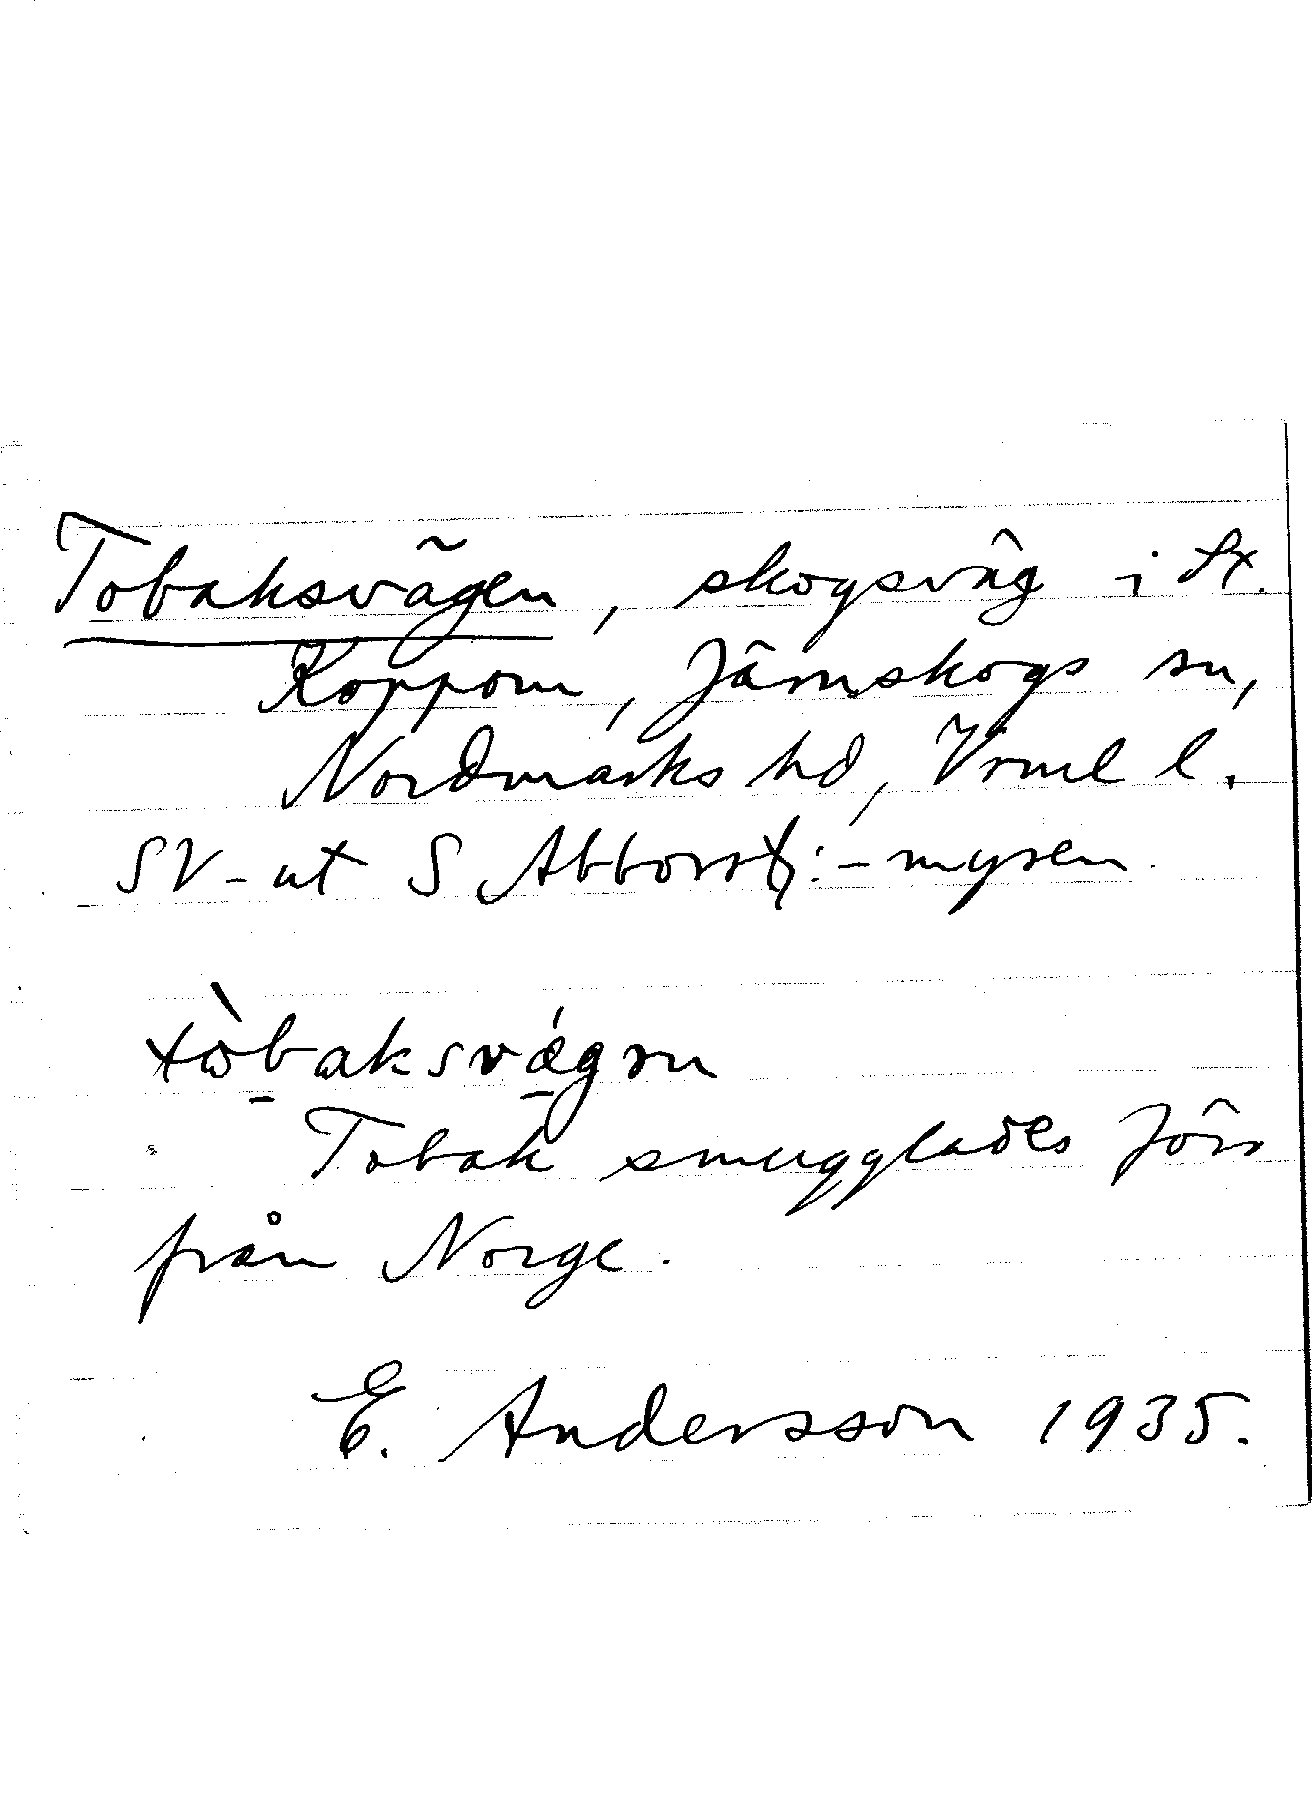 Tobaksvägen, skogsväg i St.
Koppom, Järnskogs sn,
Nordmarks hd, Vrml l.
SV-ut S Abborrtj:-myren.
tòbaksvǽgɴ
Tobak smugglades förr
från Norge.
E. Andersson 1935.